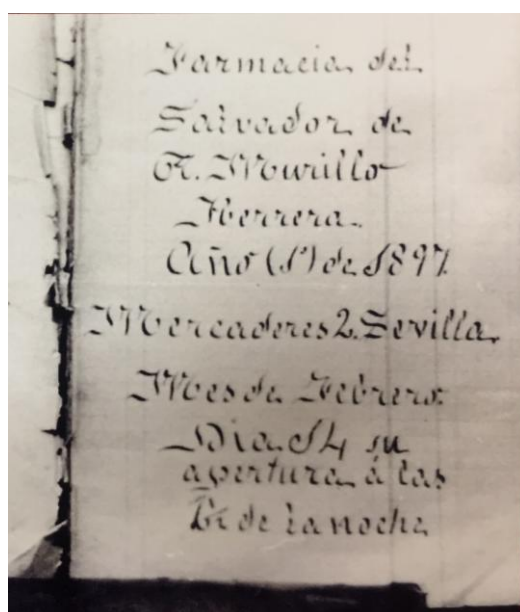 Farmacia del
Salvador de
A. Murillo
Herrera.
Año (1º) de 1897.
Mercaderes 2. Sevilla.
Mes de Febrero.
Dia 14 su
apertura á las
de la noche